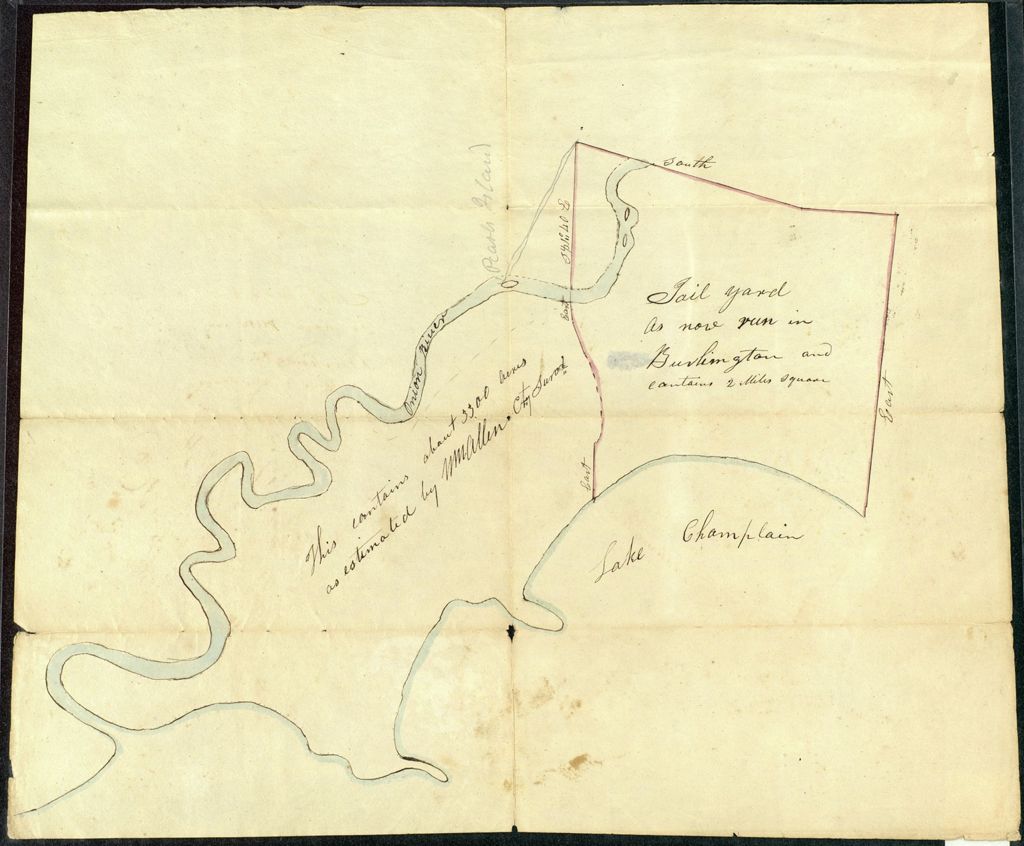 South
Pearls Island
East
Onion River
Jail yard
as now run in
Burlington and
contains 2 Miles Square
East
East
This contains about 3300 acres
as estimated by Wm Allen Cty Survr
Lake Champlain